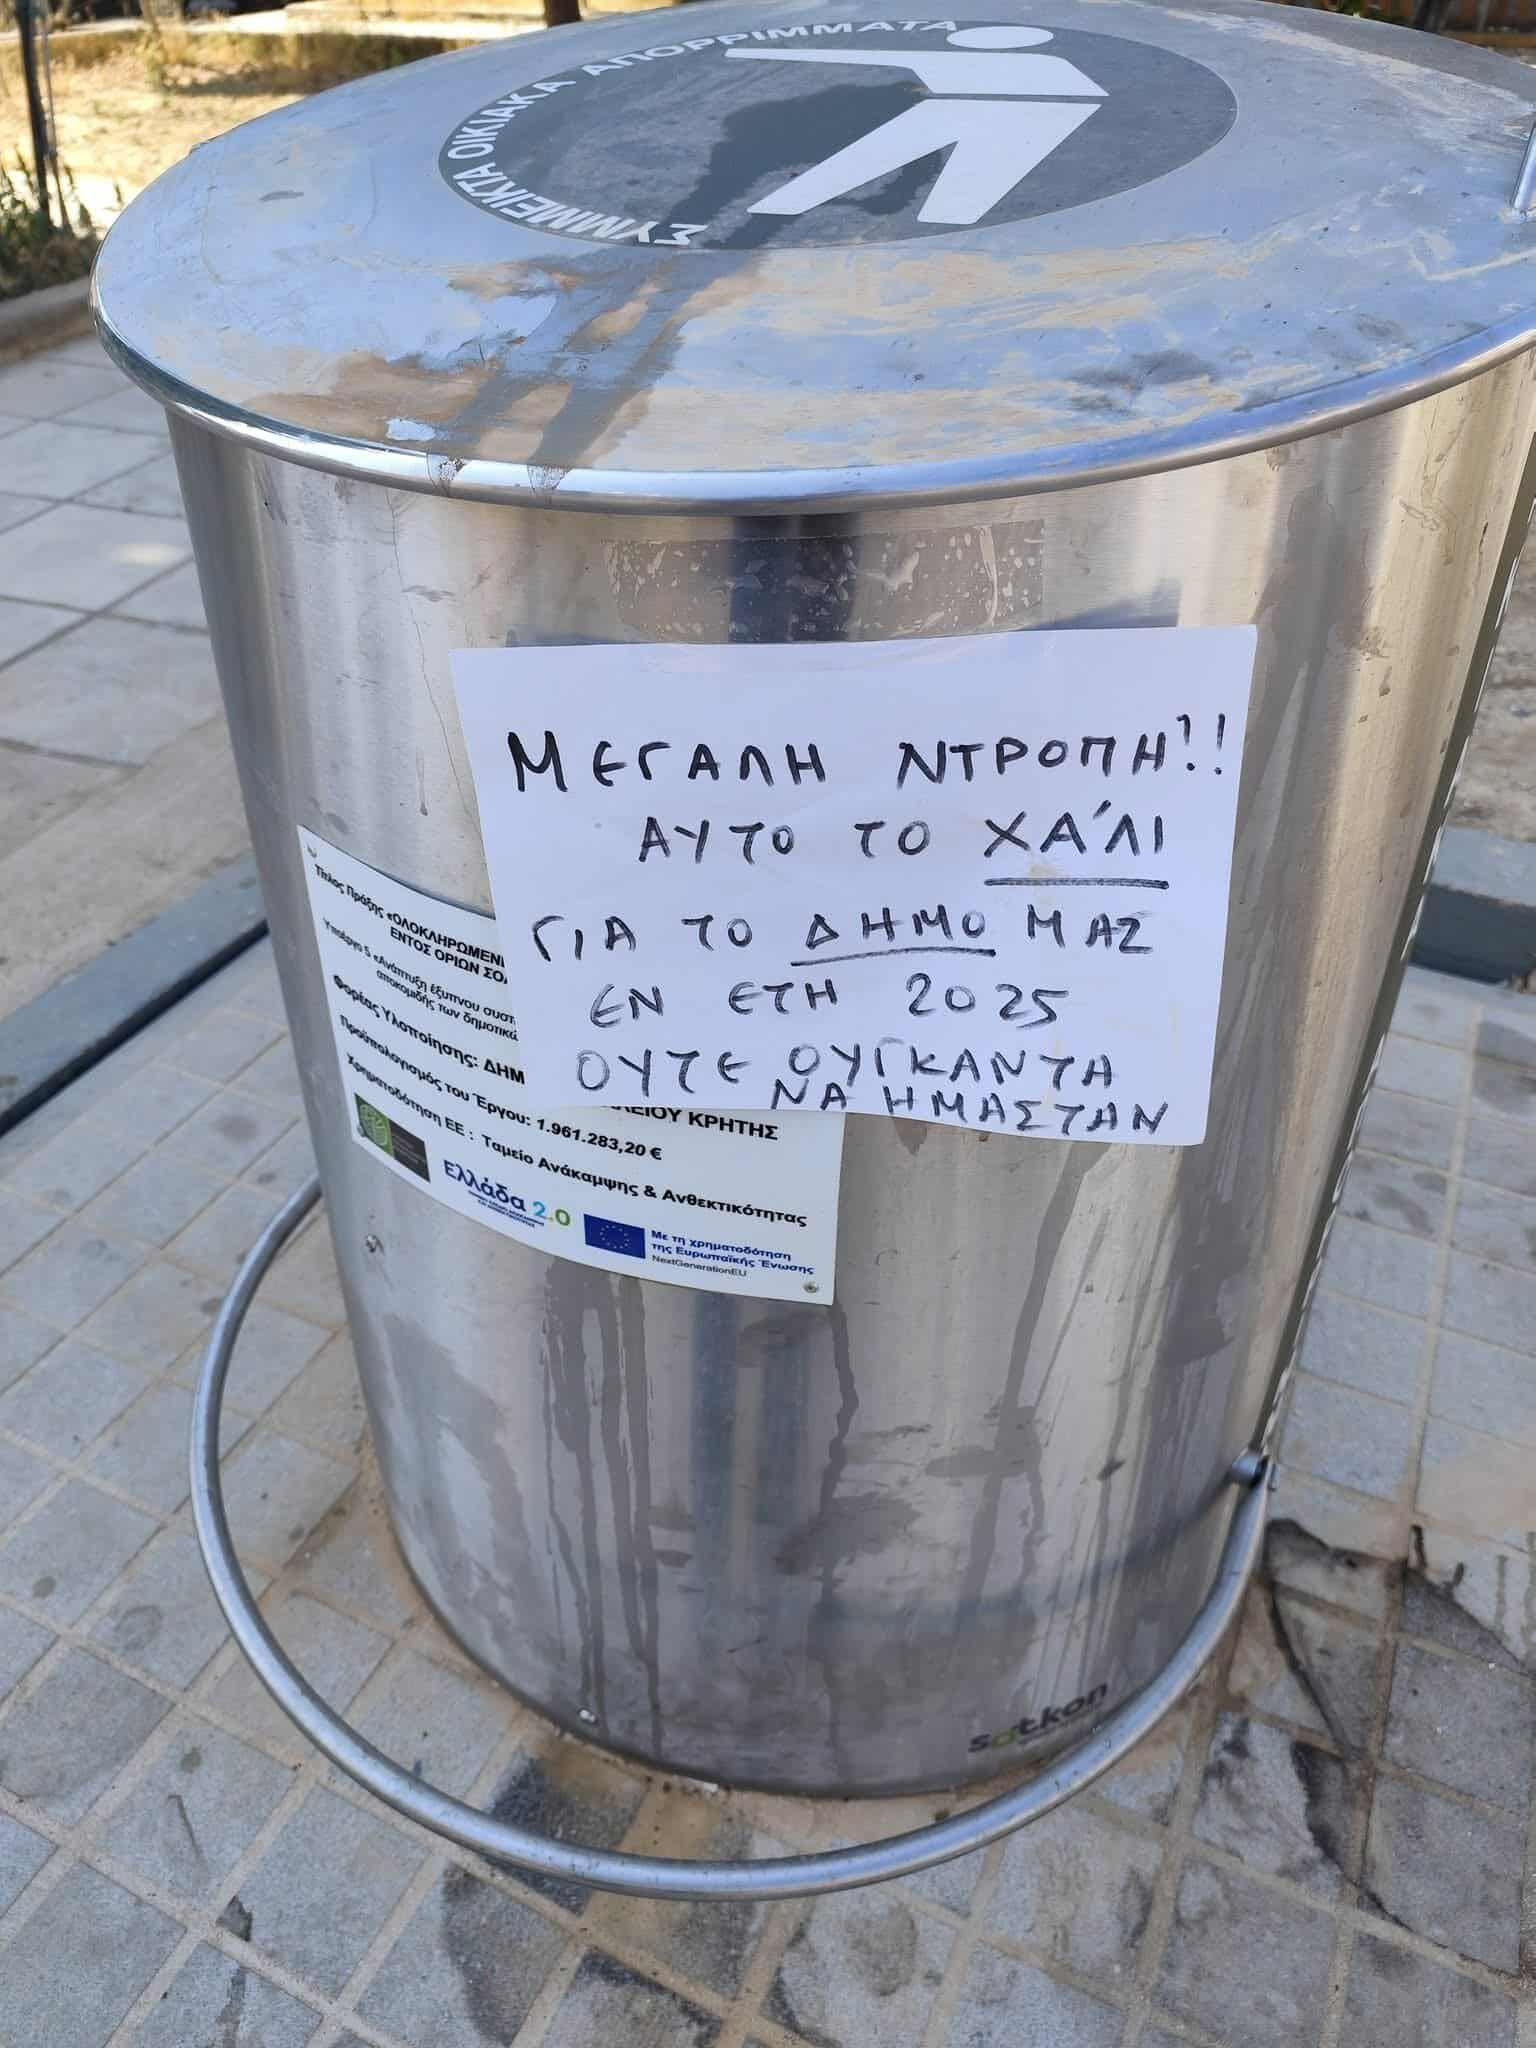 ΣΥΜΜΕΙΚΤΑ ΟΙΚΙΑΚΑ ΑΠΟΡΡΙΜΜΑΤΑ
ΜΕΓΑΛΗ ΝΤΡΟΠΗ!!
ΑΥΤΟ ΤΟ ΧΆΛΙ
ΓΙΑ ΤΟ ΔΗΜΟ ΜΑΣ
ΕΝ ΕΤΗ 2025
ΟΥΤΕ ΟΥΓΚΑΝΤΑ
ΝΑ ΗΜΑΣΤΑΝ
Τίτλος Πράξης «ΟΛΟΚΛΗΡΩΜΕΝ
ΕΝΤΟΣ ΟΡΙΩΝ ΣΟ
Υποέργο 5 «Ανάπτυξη έξυπνου συστ
αποκομιδής των δημοτικώ
Φορέας Υλοποίησης: ΔΗΜ ΛΕΙΟΥ ΚΡΗΤΗΣ
Προϋπολογισμός του Έργου: 1.961.283,20 €
Χρηματοδότηση ΕΕ : Ταμείο Ανάκαμψης & Ανθεκτικότητας
Ελλάδα 2.0
Με τη χρηματοδότηση
της Ευρωπαϊκής Ένωσης
NextGenerationEU
sotkon